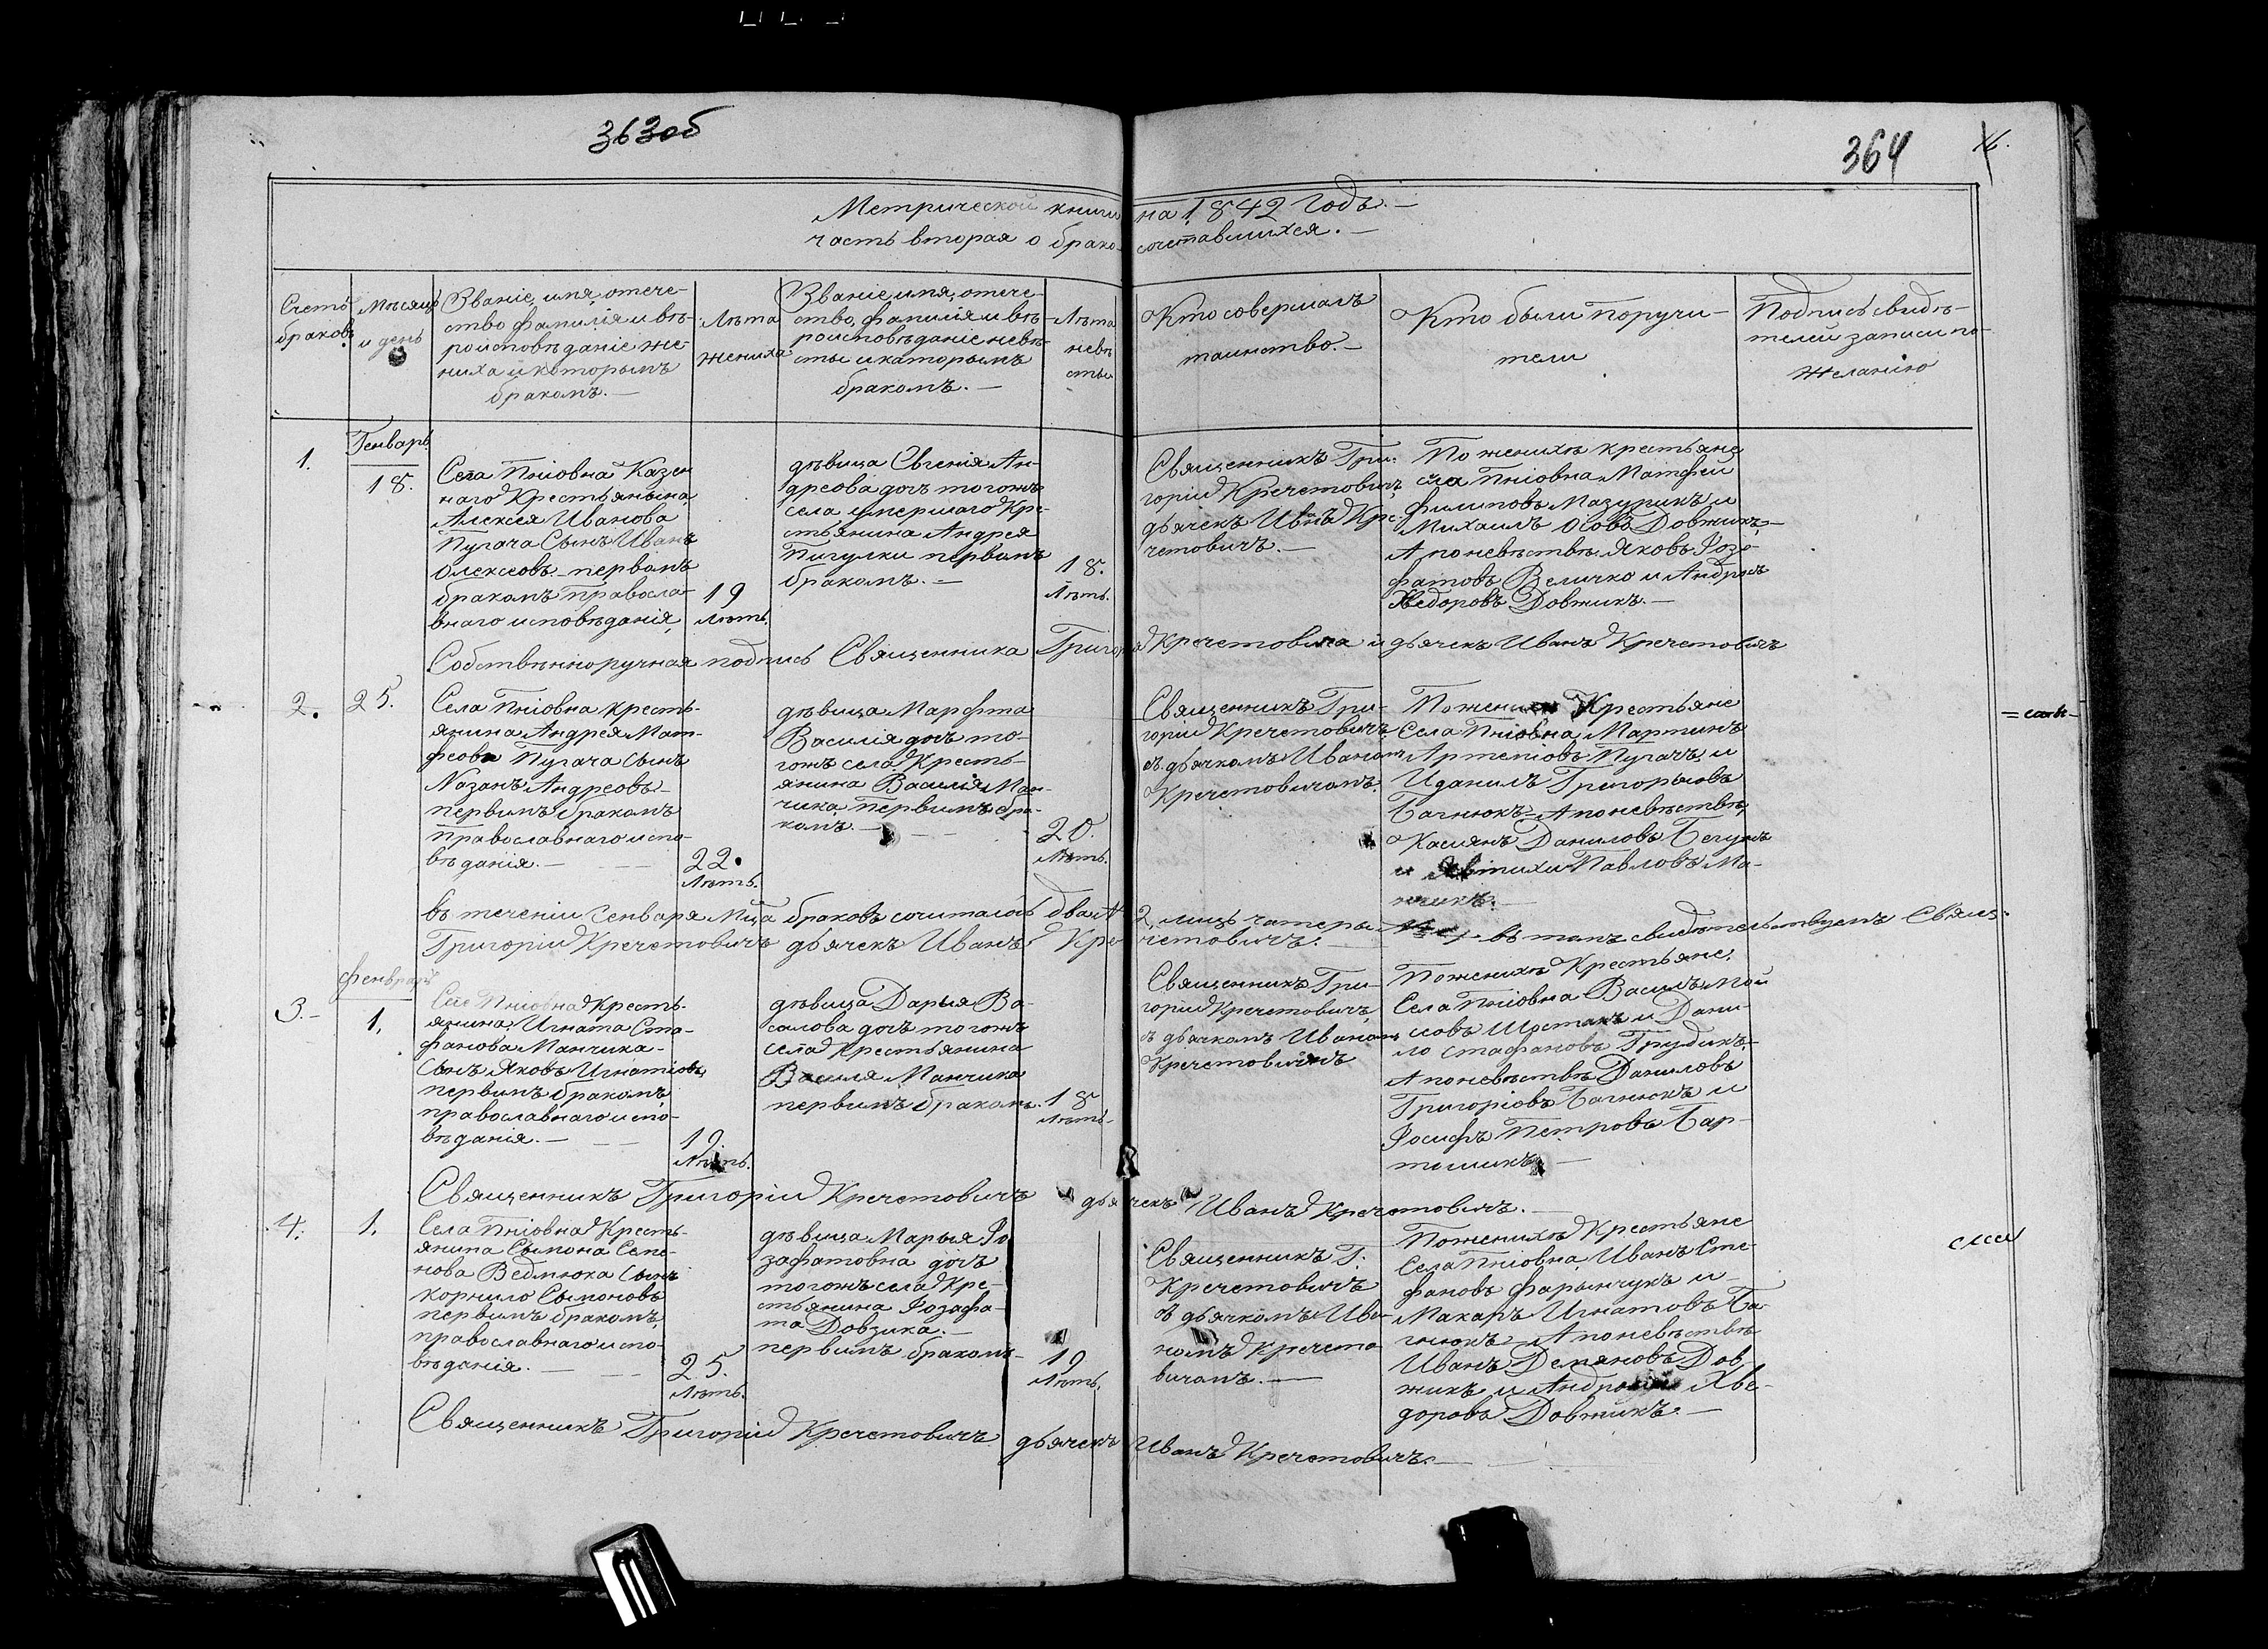 363об
364
Метрической книги на 1842 Годъ.—
часть вторая о брако-сочетавшихся.—
Счетъ браковъ.
Мѣсяцъ и день
Званіе, имя, отече-
ство, фамилія и вѣ-
роисповѣданіе же-
ниха и которымъ
бракомъ.—
Лѣта
жениха
Званіе, имя, отече-
ство, фамилія и вѣ-
роисповѣданіе невѣ-
сты и каторымъ
бракомъ.—
Лѣта
невѣ
сты
Кто совершалъ
таинство.—
Кто были Поручи-
тели
Подпись свидѣ-
телей записи по-
желанію
1.
Генварь
18.
Села Пніовна Казен
наго Крестьянына
Алексея Иванова
Пугача Сынъ Иванъ
Олексеовъ первымъ
бракомъ Правосла-
внаго исповѣданія
19
Лѣтъ.
дѣвица Евгенія Ан-
дреова дочь тогожъ
села умершаго Кре-
стьянина Андрея
Пигулки первымъ
бракомъ.—
18.
Лѣтъ.
Священникъ Гри-
горій Кречетовичъ
дьячекъ Иванъ Кре-
четовичъ.—
По женихѣ крестьяне
села Пніовна Матфей
Филиповъ Мазурикъ и
Михаилъ Осовъ Довжикъ,—
А поневѣстѣ Яковъ Іозо-
фатовъ Величко и Андрей
Хведоровъ Довжикъ.—
Собственноручная подпись Священника Григорія Кречетовича и дьячекъ Иванъ Кречетовичъ
2.
25.
Села Пніовна кресть-
янина Андрея Мат-
феова Пугача Сынъ
Назаръ Андреовъ
первымъ бракомъ
Православнаго испо-
вѣданія.—
22.
Лѣтъ.
дѣвица Марфта
Василія дочь то-
гожъ села Кресть-
янина Василія Ман-
чика первымъ бра-
комъ.—
20.
Лѣтъ.
Священникъ Гри-
горій Кречетовичъ
съ дьячкомъ Иваномъ
Кречетовичомъ.
Поженихѣ Крестьяне
Села Пніовна Мартинъ
Артемовъ Пугачъ, и
Иданилъ Григорьювъ
Багнюкъ—Апоневѣстѣ,
Касиянъ Даниловъ Бегунъ
и Явтихи Павловъ Ма-
нчикъ.—
въ теченіи Генваря Мца браковъ сочиталось два 2, лицъ чатеры 4. въ томъ свидѣтельствуемъ Свящ.
Григорій Кречетовичъ дьячекъ Иванъ Кречетовичъ.
= =
3.
Февраль
1.
Села Пніовна Кресть-
янина Игната Сте-
фанова Манчика
Сынъ Яковъ Игнатіовъ,
первымъ бракомъ
православнаго испо-
вѣданія.—
19.
Лѣтъ.
дѣвица Дарья Ва-
силова дочь тогожъ
села Крестьянина
Василя Манчика
первымъ бракомъ.
18
Лѣтъ.
Священникъ Гри-
горій Кречетовичъ,
съ дьячкомъ Иваномъ
Кречетовичомъ
Поженихѣ Крестьяне,
Села Пніовна Василъ Мой
сіовъ Шостакъ и Дани-
ло Стафановъ Грудикъ,—
Апоневѣстѣ Даниловъ
Григоріовъ Багнюкъ и
Іосифъ Петровъ Бар-
тошикъ.—
Священникъ Григорій Кречетовичъ дьячекъ Иванъ Кречетовичъ.—
4.
1.
Села Пніовна Кресть-
янина Сымона Семе-
нова Ведмюка Сынъ
Корнило Сымоновъ
первымъ бракомъ,
православнаго испо-
вѣданія.—
25.
Лѣтъ.
дѣвица Марыя Іо
зафатовна дочь
тогожъ села Кре-
стьянина Іозафа-
та Довзика.—
первымъ бракомъ—
19
Лѣтъ.
Священникъ Г:
Кречетовичъ
съ дьячкомъ Ива-
номъ Кречето-
вичомъ.—
Поженихѣ Крестьяне
Села Пніовна, Иванъ Сте-
фановъ Фарынчукъ и
Макаръ Игнатовъ Ба
гнюкъ—Апоневѣстѣ
Иванъ Демяновъ Дов
жикъ и Андрей Хве-
доровъ Довжикъ.—
Священникъ Григорій Кречетовичъ дьячекъ Иванъ Кречетовичъ.—